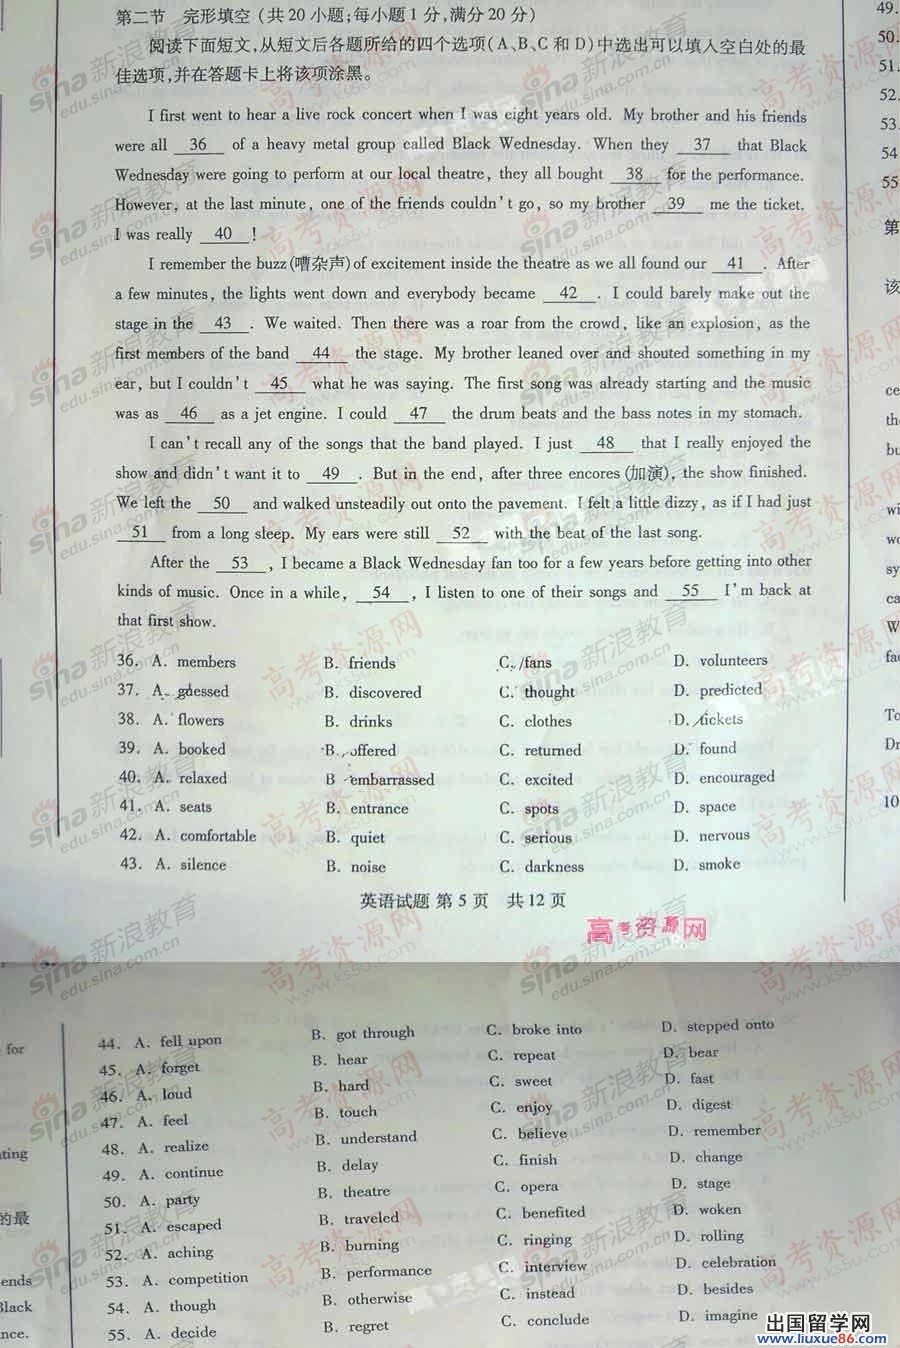 第二节　完形填空 (共20小题;每小题1分,满分20分)
阅读下面短文,从短文后各题所给的四个选项(A、B、C和D)中选出可以填入空白处的最
佳选项,并在答题卡上将该项涂黑。
I first went to hear a live rock concert when I was eight years old. My brother and his friends
were all 36 of a heavy metal group called Black Wednesday. When they 37 that Black
Wednesday were going to perform at our local theatre, they all bought 38 for the performance.
However, at the last minute, one of the friends couldn't go, so my brother 39 me the ticket.
I was really 40 !
I remember the buzz(嘈杂声)of excitement inside the theatre as we all found our 41 . After
a few minutes, the lights went down and everybody became 42 . I could barely make out the
stage in the 43 . We waited. Then there was a roar from the crowd, like an explosion, as the
first members of the band 44 the stage. My brother leaned over and shouted something in my
ear, but I couldn't 45 what he was saying. The first song was already starting and the music
was as 46 as a jet engine. I could 47 the drum beats and the bass notes in my stomach.
I can't recall any of the songs that the band played. I just 48 that I really enjoyed the
show and didn't want it to 49 . But in the end, after three encores(加演), the show finished.
We left the 50 and walked unsteadily out onto the pavement. I felt a little dizzy, as if I had just
51 from a long sleep. My ears were still 52 with the beat of the last song.
After the 53 , I became a Black Wednesday fan too for a few years before getting into other
kinds of music. Once in a while, 54 , I listen to one of their songs and 55 I'm back at
that first show.
36. A. members B. friends C. fans D. volunteers
37. A. guessed B. discovered C. thought D. predicted
38. A. flowers B. drinks C. clothes D. tickets
39. A. booked B. offered C. returned D. found
40. A. relaxed B embarrassed C. excited D. encouraged
41. A. seats B. entrance C. spots D. space
42. A. comfortable B. quiet C. serious D. nervous
43. A. silence B. noise C. darkness D. smoke
英语试题 第5页　共12页
高考资源网
44. A. fell upon B. got through C. broke into D. stepped onto
45. A. forget B. hear C. repeat D. bear
46. A. loud B. hard C. sweet D. fast
47. A. feel B. touch C. enjoy D. digest
48. A. realize B. understand C. believe D. remember
49. A. continue B. delay C. finish D. change
50. A. party B. theatre C. opera D. stage
51. A. escaped B. traveled C. benefited D. woken
52. A. aching B. burning C. ringing D. rolling
53. A. competition B. performance C. interview D. celebration
54. A. though B. otherwise C. instead D. besides
55. A. decide B. regret C. conclude D. imagine
出国留学网
www.liuxue86.com